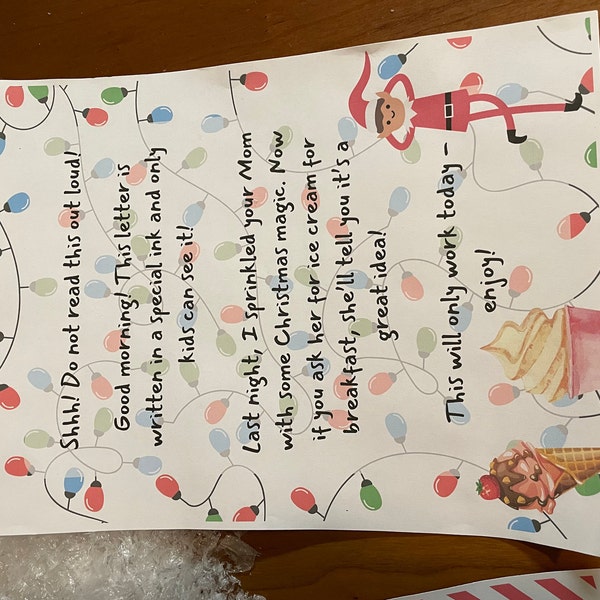 Shhh! Do not read this out loud!
Good morning! This letter is
written in a special ink and only
kids can see it!
Last night, I sprinkled your Mom
with some Christmas magic. Now
if you ask her for ice cream for
breakfast, she'll tell you it's a
great idea!
This will only work today -
enjoy!